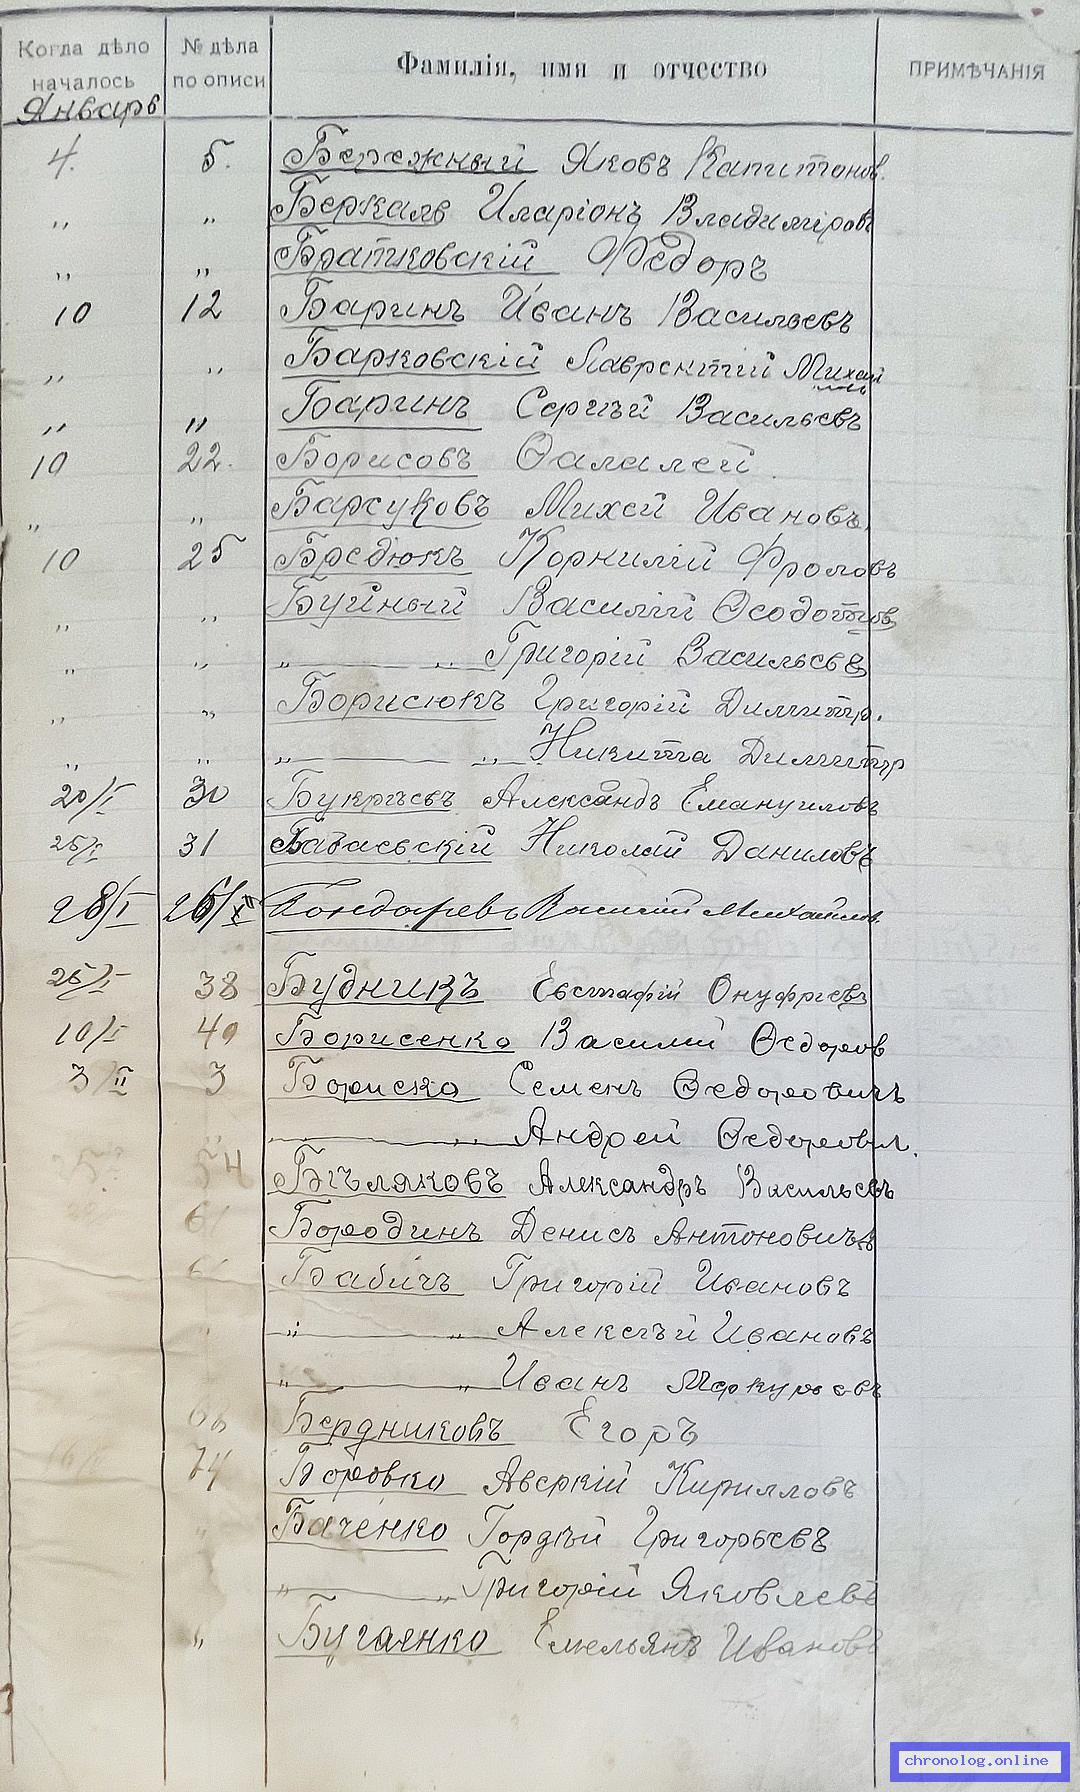 Когда дѣло началось № дѣла по описи Фамилія, имя и отчество ПРИМѢЧАНІЯ
Январь
4. 5. Бережный Яковъ Капитонов.
„ „ Беркаль Иларіонъ Владиміровъ
„ „ Братковскій Федоръ
10 12 Баринъ Иванъ Васильевъ
„ „ Барковскій Лаврентій Михай
„ „ Баринъ Сергѣй Васильевъ
10 22. Борисовъ Ѳалалей
„ „ Барсуковъ Михей Ивановъ.
10 25 Бредюкъ Корнилій Фроловъ
„ „ Буйный Василій Ѳеодотовъ
„ „ „ „ Григорій Васильевъ
„ „ Борисюкъ Григорій Димитр.
„ „ „ „ Никита Димитр
20/I 30 Букрѣевъ Александъ Емануиловъ
25/I 31 Николай Даниловъ
28/I Бондаревъ Василій Михайлов.
25/I 38 Будникъ Евстафій Онуфріевъ
10/I 40 Борисенко Василий Ѳедоров
3/II 3 Бориско Семенъ Ѳедоровичъ
„ „ „ Андрей Ѳедорович.
54 Бѣляковъ Александръ Васильевъ
61 Бородинъ Денисъ Антоновичъ
Бабичъ Григорій Ивановъ
„ „ „ Алексѣй Ивановъ
„ „ Иванъ Меркурьевъ
Бердниковъ Егоръ
74 Боровко Аверкій Кирилловъ
„ Баченко Гордѣй Григорьевъ
„ „ Григорій Яковлевъ
„ Бугаенко Емельянъ Ивановъ
chronolog.online